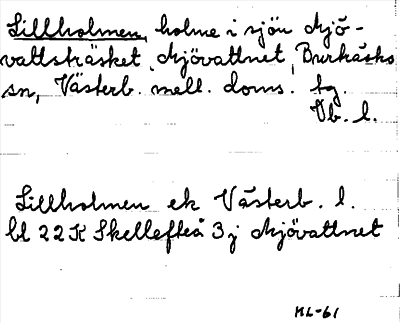 Lillholmen, holme i sjön Mjö-
vattsträsket, Mjövattnet, Burträsks
sn, Västerb. mell. doms. tg.
Vb. l.
Lillholmen ek Västerb. l.
bl 22K Skellefteå 3j Mjövattnet
ML-61